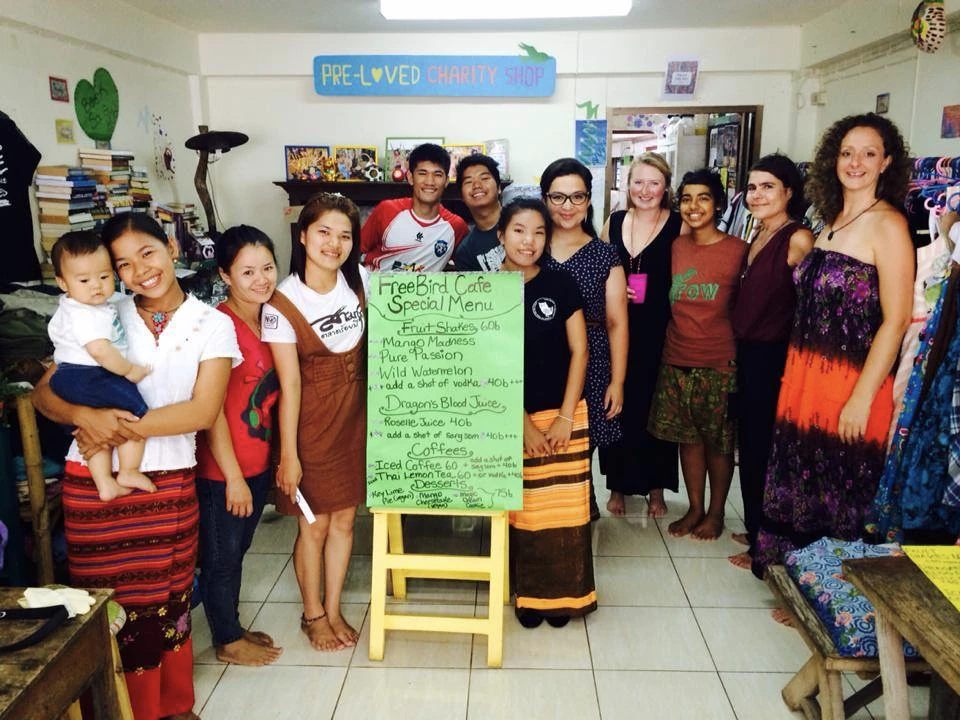 PRE-LOVED CHARITY SHOP
FREEBIRD CAFE
SPECIAL MENU
FRUIT SHAKES 60b
MANGO MADNESS
PURE PASSION
WILD WATERMELON
add a shot of vodka 40b +++
DRAGON'S BLOOD JUICE
ROSELLE JUICE 40b
add a shot of sang som 40b +++
COFFEES
ICED COFFEE 60 + add a shot of sang som + 40b
THAI LEMON TEA 60 + or vodka + 40b
DESSERTS
Key Lime Pie (vegan)
Mango Cheesecake (vegan)
Cookie
75b